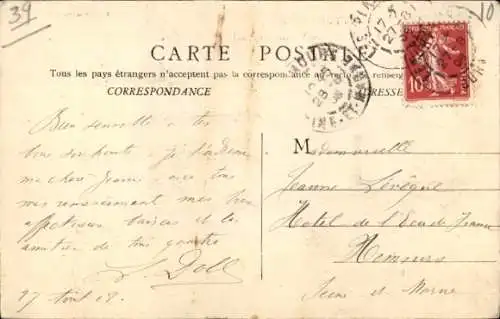 39
10
CARTE POSTALE
Tous les pays étrangers n'acceptent pas la correspondance au recto, se renseign
CORRESPONDANCE
RESSE
10
Bien sensible à tes
bons souhaits je t'adresse
ma chère Jeanne avec tous
mes remerciements mes bien
affectueux baisers et les
amitiés de tous
J. Doll
27 Août 12.
Mademoiselle
Jeanne Levêque
Hotel de l'Ecu de France
Nemours
Seine et Marne